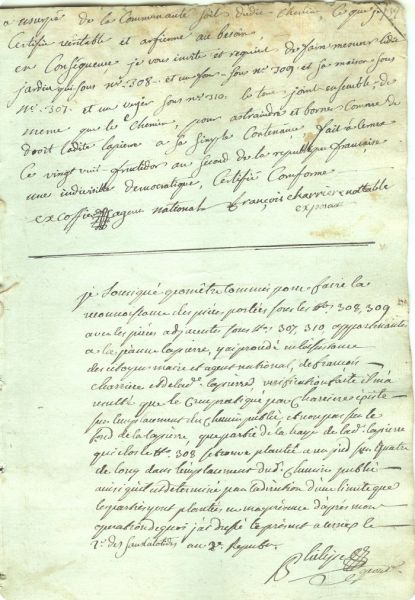 a usurpé de la Communauté soit dudit chemin ce que je
Certifie véritable et affirme au besoin
en Conséquence je vous invite et requiert de faire mesurer ledit
jardin qui sous nº 308 et un fon sous nº 309 et sa maison sous
Nº 307 et un verger sous nº 310 le tout joint ensemble de
meme que le Chemin, pour astraindre et borner comme de
droit ladite lapierre a sa simple Contenance fait à
Ce vingt huit fructidor au second de la republique francaise
une indivisible democratique, Certifié Conforme
excoffier agent national françois charriere nottable
exposant
je soussigné geomêtre commis pour faire la
reconnoissance des pièces portées sous les Nos 308, 309
avec les pièces adjacentes sous Nos 307, 310 appartenantes
a la jeanne lapierre, y ai procédé en l'assistance
des citoyens maire et agent national, de francois
charriere et de lad. lapierre, verification faite il m'a
resulté que le Creux pratiqué par charriere existe
sur l'emplacement du chemin public et non pas sur le
fond de la lapierre, que partie de la haye de lad. lapierre
qui clos le Nº 308 se trouve plantée a un pied sur quatre
de long dans l'emplacement dud. chemin public
ainsi qu'il est determiné par la direction d'une limite que
les parties ont plantée en ma présence d'après mon
operation de quoi j'ai dressé le présent a le
2e des Sansculotides au 2e Repubn.